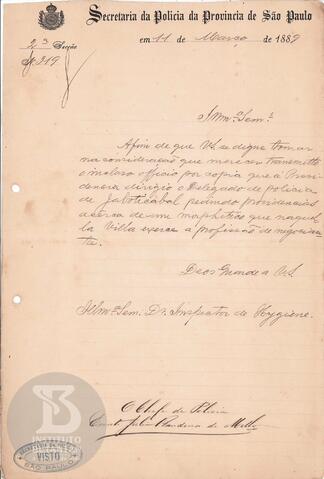 Secretaria da Policia da Provincia de São Paulo
em 11 de Março de 1889
2ª Secção
Nº 219
Illmº Senrº
Afim de que VS. se digne tomar
na consideração que merecer transmitto
o incluso officio por copia que á Presi
dencia dirigio o Delegado de policia
de Jaboticabal pedindo providencias
acerca de um morphetico que naquel
la Villa exerce a profissão de negocian
te.
Deos Guarde a VS.
Illmº Senr. Dr. Inspector de Hygiene.
O Chefe de Policia
Bandeira de Mello
INSTITUTO
VISTO
SÃO PAULO